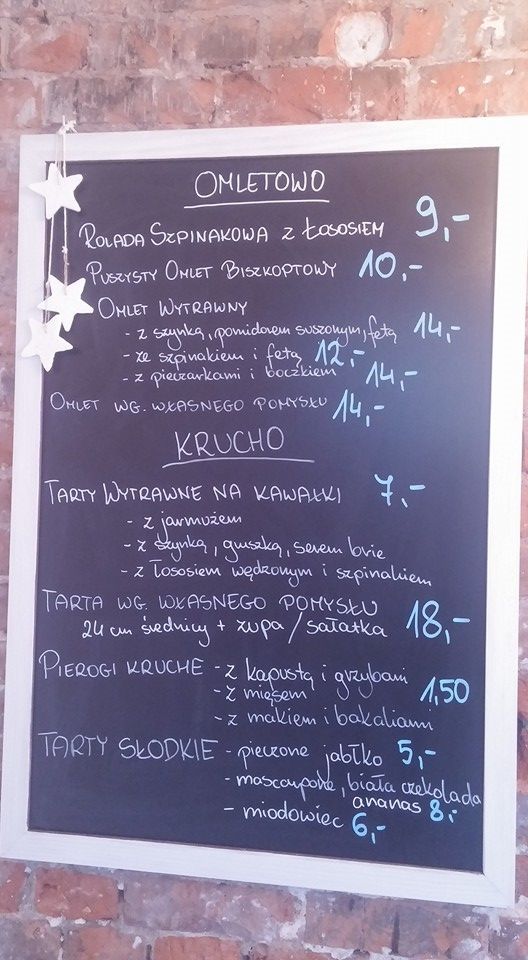 OMLETOWO
ROLADA SZPINAKOWA Z ŁOSOSIEM 9,-
PUSZYSTY OMLET BISZKOPTOWY 10,-
OMLET WYTRAWNY
- z szynką, pomidorem suszonym, fetą 14,-
- ze szpinakiem i fetą 12,-
- z pieczarkami i boczkiem 14,-
OMLET WG. WŁASNEGO POMYSŁU 14,-
KRUCHO
TARTY WYTRAWNE NA KAWAŁKI 7,-
- z jarmużem
- z szynką, gruszką, serem brie
- z łososiem wędzonym i szpinakiem
TARTA WG. WŁASNEGO POMYSŁU 18,-
24 cm średnicy + zupa / sałatka
PIEROGI KRUCHE - z kapustą i grzybami 1,50
- z mięsem
- z makiem i bakaliami
TARTY SŁODKIE - pieczone jabłko 5,-
- mascarpone, biała czekolada
ananas 8,-
- miodowiec 6,-